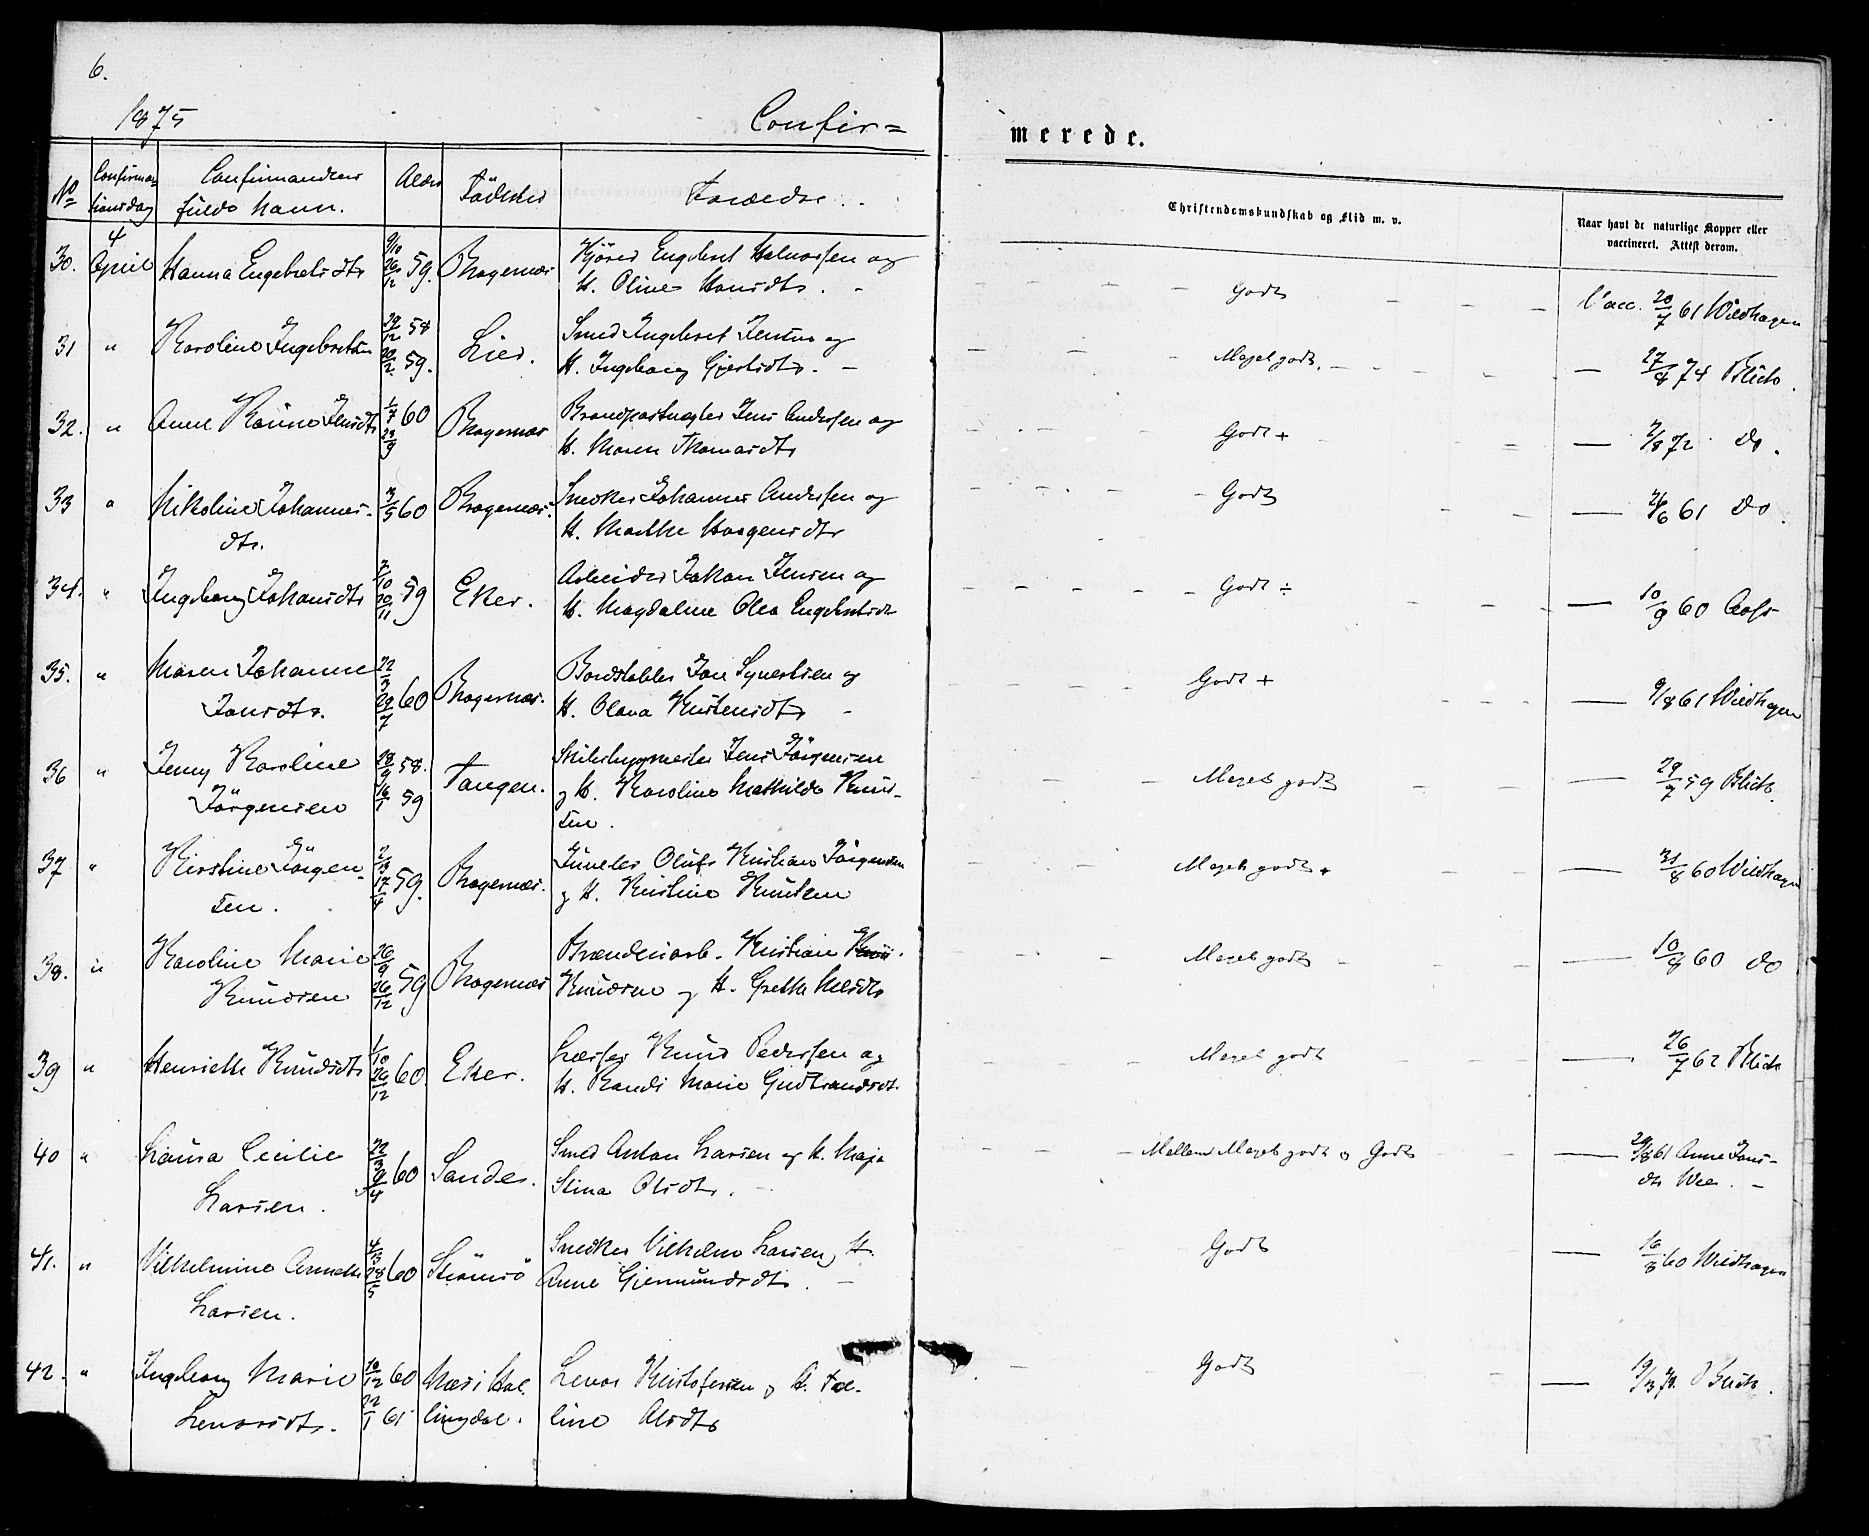 6.
1875
Confir=
merede.
No
Confirma=
tionsdag
Confirmandens
fulde Navn.
Alder
Födested
Forældre.
Christendomskundskab og Flid m. v.
Naar havt de naturlige Kopper eller
vaccineret. Attest derom.
30. 4 April Hanna Engebretsdtr 9/10 26/12 59. Bragernæs Kjörer Engebret Halvorsen og
H. Oline Hansdtr. Godt Vacc. 20/7 61 Wildhagen
31 " Karoline Ingebretsen 29/12 58 20/2 59. Lier. Smed Ingebret Jensen og
H. Ingeborg Gjertsdtr. Meget godt. 27/8 74 Blich.
32. " Anne Karine Jensdtr 1/7 60 23/9 Bragernæs Jens Andersen og
H. Maren Thomasdtr Godt + 2/8 72 do.
33 " Nikoline Johannes-
dtr. 3/5 60 Bragernæs. Snedker Johannes Andersen og
H. Marthe Haagensdtr Godt 26/6 61 do.
34. " Ingeborg Johansdtr 3/10 20/11 59 Eker. Arbeider Johan Jensen og
H. Magdalene Olea Engebretsdtr Godt ÷ 10/9 60
35. " Maren Johanne
Jansdtr. 22/3 29/7 60 Bragernæs. Bordstabler Jan Syvertsen og
H. Olava Kristensdtr Godt + 9/8 61 Wildhagen
36 " Jenny Karoline
Jörgensen 28/9 58. 16/1 59 Tangen. Skibsbygmester Jens Jörgensen
og H. Karoline Mathilde Knud-
sen. Meget godt 29/7 59 Blich.
37. " Kirstine Jörgen-
sen. 2/3 17/4 59. Bragernæs. Juveler Oluf Kristian Jörgensen
og H. Kristine Knutsen Meget godt + 31/8 60 Wildhagen
38. " Karoline Marie
Knudsen 26/9 26/12 59 Bragernæs Brænderiarb. Kristian
Knudsen og H. Grethe Nilsdtr Meget godt 10/8 60 do
39 " Henriette Knudsdtr 1/10 26/12 60 Eker. Knud Pedersen og
H. Randi Marie Gudbrandsdtr. Meget godt 26/7 62 Blich
40 " Laura Cecilie
Larsen. 22/3 9/4 60 Sande. Smed Anton Larsen og H. Maja
Stina Olsdtr. Mellem Meget godt og Godt 29/8 61 Anne Jans-
dtr Wee.
41. " Vilhelmine Annette
Larsen. 4/3 28/5 60 Strömsö Snedker Vilhelm Larsen og H.
Anne Gjermundsdtr. Godt 16/8 60 Wildhagen
42. " Ingeborg Marie
Lenasdtr. 10/12 60 22/1 61 Næs i Hal-
lingdal. Kristofersen og H.
line Olsdtr Godt Blich.